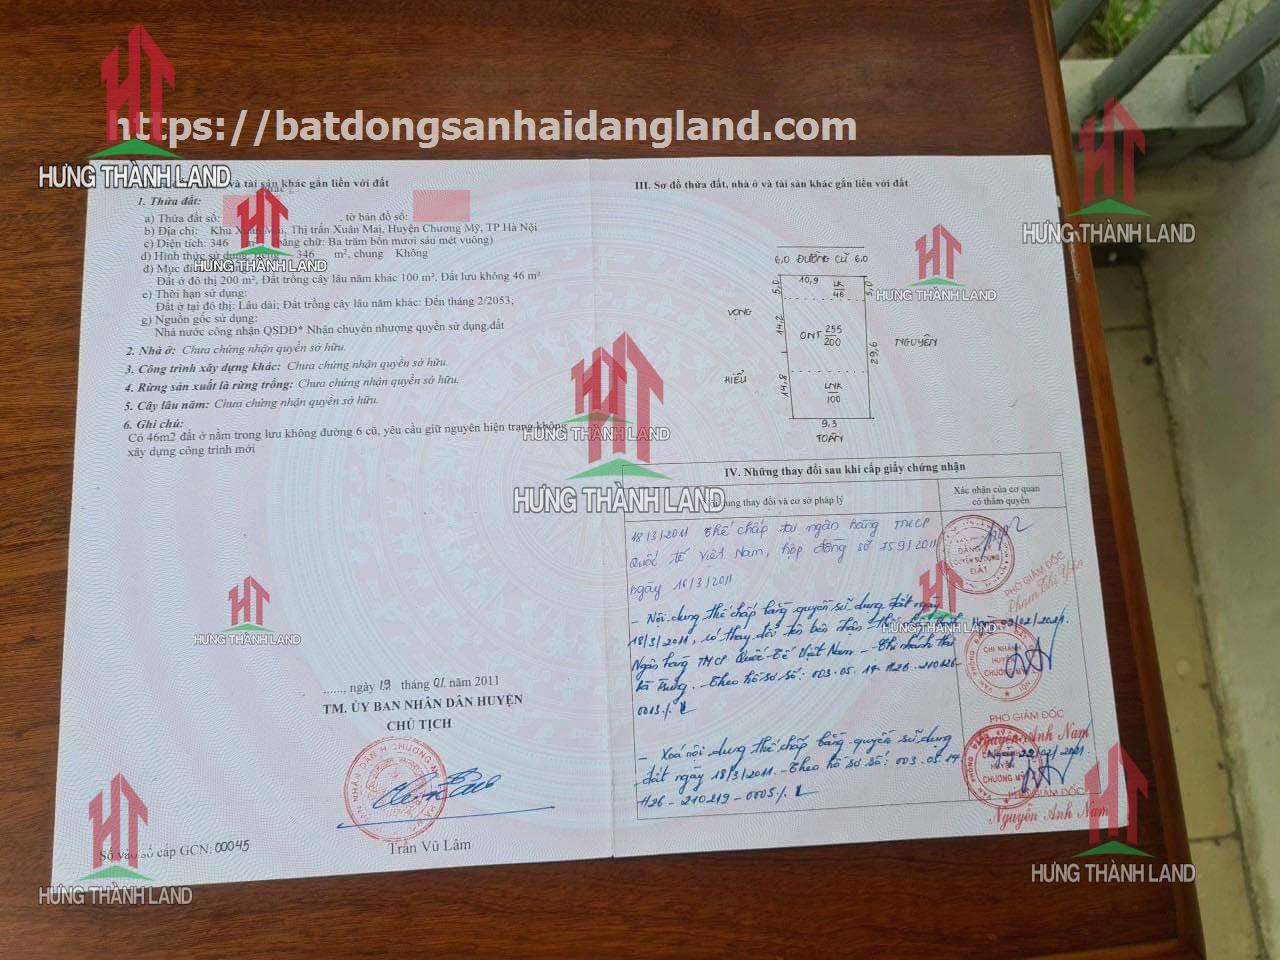 https://batdongsanhaidangland.com
HƯNG THÀNH LAND
và tài sản khác gắn liền với đất
1. Thửa đất:
a) Thửa đất số: , tờ bản đồ số:
b) Địa chỉ: Khu Xuân Mai, Thị trấn Xuân Mai, Huyện Chương Mỹ, TP Hà Nội
c) Diện tích: 346 bằng chữ: Ba trăm bốn mươi sáu mét vuông)
d) Hình thức sử dụng: 346 m², chung Không
đ) Mục
Đất ở đô thị 200 m², Đất trồng cây lâu năm khác 100 m², Đất lưu không 46 m²
e) Thời hạn sử dụng:
Đất ở tại đô thị: Lâu dài; Đất trồng cây lâu năm khác: Đến tháng 2/2053;
g) Nguồn gốc sử dụng:
Nhà nước công nhận QSDĐ* Nhận chuyển nhượng quyền sử dụng đất
2. Nhà ở: Chưa chứng nhận quyền sở hữu.
3. Công trình xây dựng khác: Chưa chứng nhận quyền sở hữu.
4. Rừng sản xuất là rừng trồng: Chưa chứng nhận quyền sở hữu.
5. Cây lâu năm: Chưa chứng nhận quyền sở hữu.
6. Ghi chú:
Có 46m2 đất ở nằm trong lưu không đường 6 cũ, yêu cầu giữ nguyên hiện trạng không
xây dựng công trình mới
......, ngày 19 tháng 01 năm 2011
TM. ỦY BAN NHÂN DÂN HUYỆN
CHỦ TỊCH
Trần Vũ Lâm
Số vào sổ cấp GCN: 00045
III. Sơ đồ thửa đất, nhà ở và tài sản khác gắn liền với đất
6,0 ĐƯỜNG CŨ 6,0
10,9
5,0
LK
46
5,0
VỌNG
14,2
ONT 255
200
NGUYÊN
29,6
HIẾU
14,8
LNK
100
9,3
TOÁN
IV. Những thay đổi sau khi cấp giấy chứng nhận
dung thay đổi và cơ sở pháp lý
Xác nhận của cơ quan
có thẩm quyền
18/3/2011 Thế chấp tại ngân hàng TMCP
Quốc tế Việt Nam, hợp đồng số 159/2011
ngày 16/3/2011
- Nội dung thế chấp bằng quyền sử dụng đất ngày
18/3/2011, có thay đổi tên bên nhận thế chấp
Ngân hàng TMCP Quốc Tế Việt Nam - Chi nhánh Hai
Bà Trưng. - Theo hồ sơ số: 003.05.19.H26-210126-
0013/.
- Xoá nội dung thế chấp bằng quyền sử dụng
đất ngày 18/3/2011. - Theo hồ sơ số: 003.05.19
H26-210219-0005/.
ĐĂNG KÝ
QUYỀN SỬ DỤNG
ĐẤT
PHÓ GIÁM ĐỐC
CHI NHÁNH
HUYỆN
CHƯƠNG MỸ
PHÓ GIÁM ĐỐC
Nguyễn Anh Nam
HUYỆN
CHƯƠNG MỸ
PHÓ GIÁM ĐỐC
Nguyễn Anh Nam
HƯNG THÀNH LAND
HƯNG THÀNH LAND
HƯNG THÀNH LAND
HƯNG THÀNH LAND
HƯNG THÀNH LAND
HƯNG THÀNH LAND
HƯNG THÀNH LAND
HƯNG THÀNH LAND
HƯNG THÀNH LAND